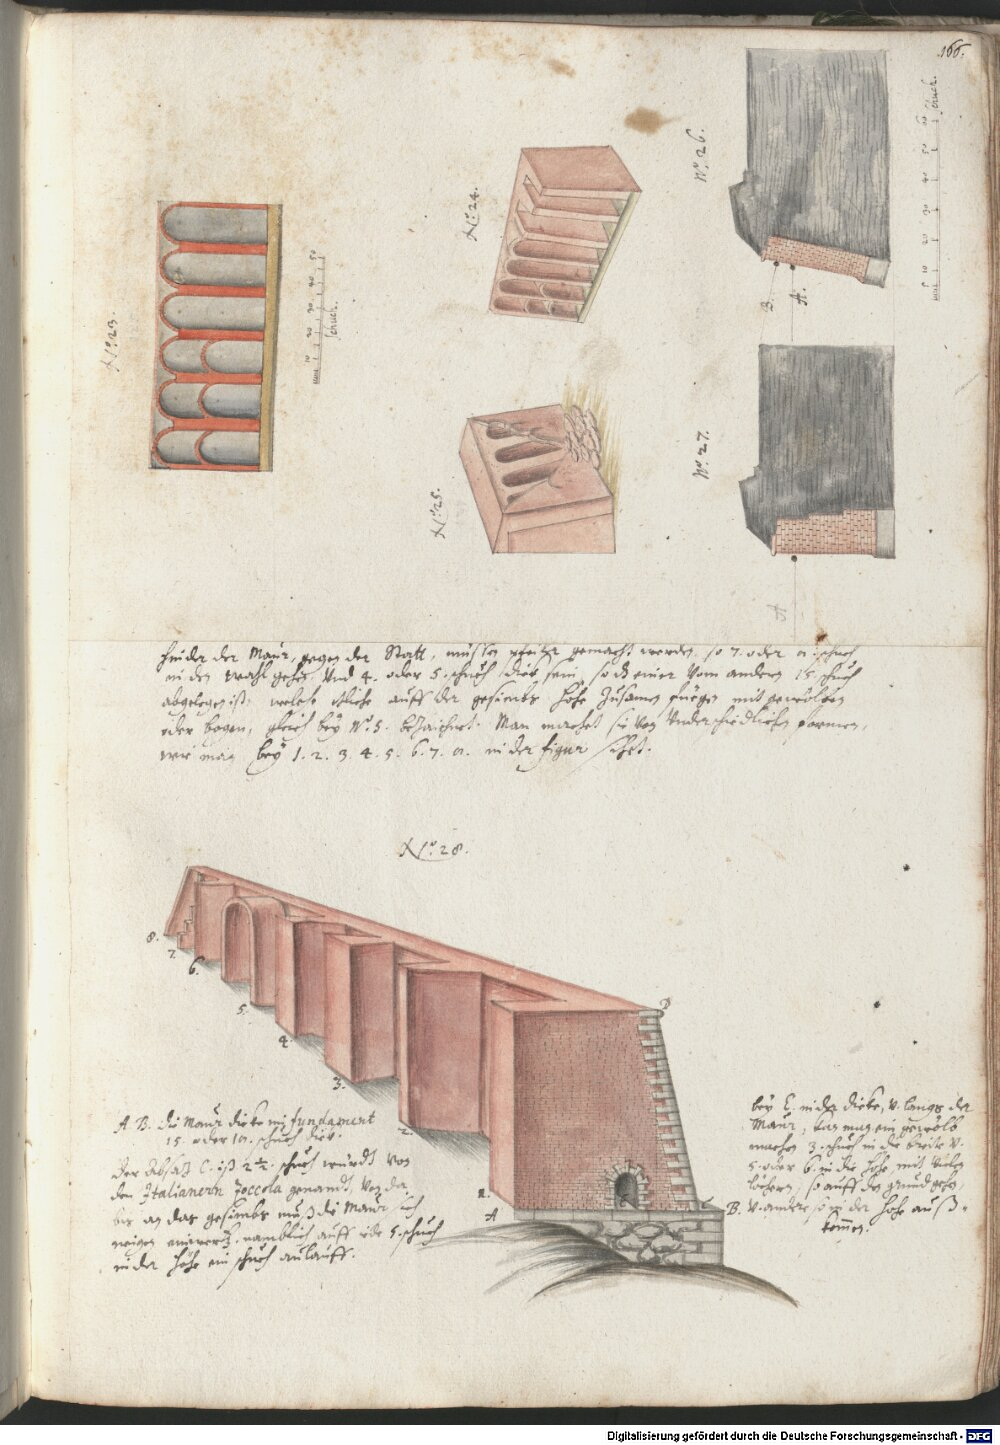 166.
N.º 23.
Schuch.
10 20 30 40 50
N.º 24.
N.º 25.
N.º 26.
B. A.
5 10 20 30 40 50 60 Schuch.
N.º 27.
A
hinder der Maur, gegen der Statt, müssen pfeiler gemacht werden, so 7. oder 8. schuch
in den Wahl gehen, Und 4. oder 5. schuch dick sein, so dz einer Vom andern 15 schuch
abgelegen ist, welche etliche auff der gesimbs höhe Zusamen fuegen mit gewölben
oder bogen, gleich bey N.º 5. bezaichnet. Man machet sie von Underschiedlichen formen,
wie man bey 1. 2. 3. 4. 5. 6. 7. 8. in der figur sihet.
N.º 28.
8.
7.
6.
5.
4.
3.
2.
1.
D
A
C
B.
A B. die Maur dicke im fundament
15. oder 18. schuch dick.
Der Absatz C. ist 2 ½. schuch würdt von
den Italianern Zoccola genandt, Von da
bis an das gesimbs muß die Maur sich
neigen einwertz. namblich auff ide 5. schuch
in der höhe ein schuch anlauff.
bey E. in der dicke, v. langs der
Maur, kan man ein gewölb
machen 3. schuch in die breite v.
5. oder 6. in die höhe, mit Vielen
löchern, so auff den grund gehn,
v. andere, so in der höhe auß-
kom̅en.
Digitalisierung gefördert durch die Deutsche Forschungsgemeinschaft - DFG